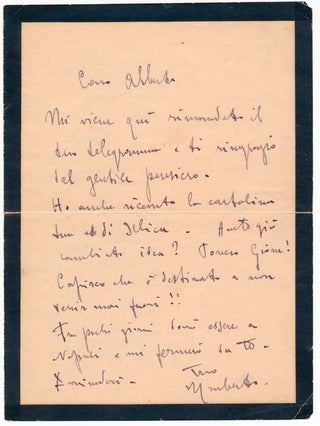 Caro Alberto
Mi viene qui rimandato il
tuo telegramma e ti ringrazio
del gentile pensiero.
Ho anche ricevuto la cartolina
tua di . Avete già
cambiato idea? Povero Gione!
Capisco che è destinato a non
venir mai fuori!!
Fra pochi giorni dovrò essere a
Napoli e mi fermerò da te.
Arrivederci. Tuo
Umberto.